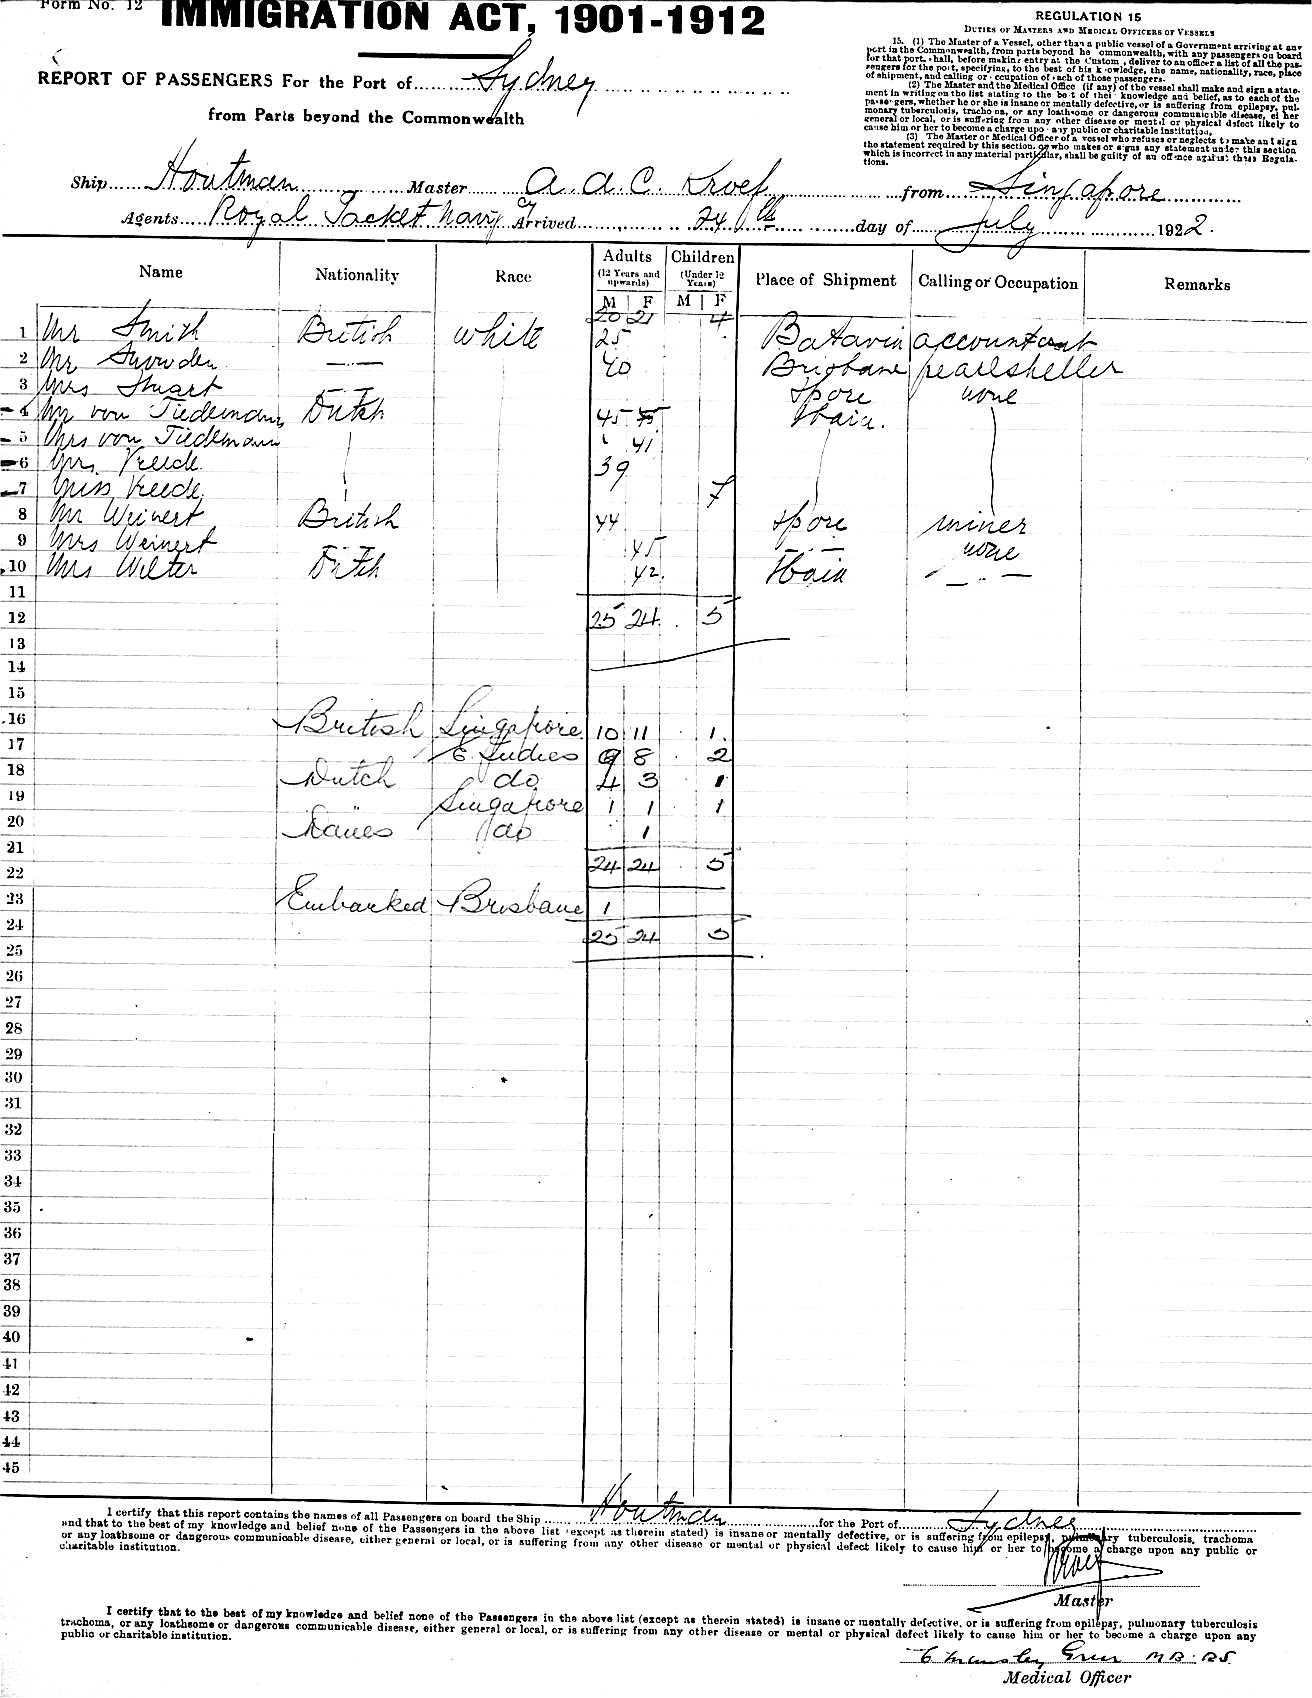 Form No. 12
IMMIGRATION ACT, 1901-1912
REPORT OF PASSENGERS For the Port of Sydney
from Parts beyond the Commonwealth
REGULATION 15
DUTIES OF MASTERS AND MEDICAL OFFICERS OF VESSELS
15. (1) The Master of a Vessel, other than a public vessel of a Government arriving at any
port in the Commonwealth, from parts beyond he ommonwealth, with any passengers on board
for that port, hall, before making entry at the Custom , deliver to an officer a list of all the pas-
sengers for the port, specifying, to the best of his k owledge, the name, nationality, race, place
of shipment, and calling or ccupation of each of those passengers.
(2) The Master and the Medical Office (if any) of the vessel shall make and sign a state-
ment in writing on the list stating to the be t of thei knowledge and belief, as to each of the
passengers, whether he or she is insane or mentally defective, or is suffering from epilepsy, pul-
monary tuberculosis, tracho na, or any loathsome or dangerous communicible disease, ei her
general or local, or is suffering from any other disease or mental or physical defect likely to
cause him or her to become a charge upo any public or charitable institution.
(3) The Master or Medical Officer of a vessel who refuses or neglects to make and sign
the statement required by this section, or who makes or signs any statement under this section
which is incorrect in any material particular, shall be guilty of an offence against these Regula-
tions.
Ship Houtman Master A. A. C. Kroef from Singapore
Agents Royal Packet Navig Cy Arrived 24th day of July 1922.
Name Nationality Race Adults (12 Years and upwards) M F Children (Under 12 Years) M F Place of Shipment Calling or Occupation Remarks
20 21 4
1 Mr Smith British white 25 Batavia accountant
2 Mr Snowden — 40 Brisbane pearlsheller
3 Mrs Stuart Spore none
4 Mr von Tiedemann Dutch 45 Bavia.
5 Mrs von Tiedemann 41
6 Mrs. Vreede. 39
7 Miss Vreede. 7
8 Mr Weinert British 44 Spore miner
9 Mrs Weinert 45 — none
10 Mrs Welter Dutch 42. Bavia —
11
12 25 24 5
13
14
15
16 British Singapore 10 11 1
17 E Indies 9 8 2
18 Dutch do 4 3 1
19 Singapore 1 1 1
20 Danes do 1
21
22 24 24 5
23 Embarked Brisbane 1
24
25 25 24 5
26
27
28
29
30
31
32
33
34
35
36
37
38
39
40
41
42
43
44
45
I certify that this report contains the names of all Passengers on board the Ship Houtman for the Port of Sydney
and that to the best of my knowledge and belief none of the Passengers in the above list (except as therein stated) is insane or mentally defective, or is suffering from epilepsy, pulmonary tuberculosis, trachoma
or any loathsome or dangerous communicable disease, either general or local, or is suffering from any other disease or mental or physical defect likely to cause him or her to become a charge upon any public or
charitable institution.
Kroef
Master
I certify that to the best of my knowledge and belief none of the Passengers in the above list (except as therein stated) is insane or mentally defective, or is suffering from epilepsy, pulmonary tuberculosis
trachoma, or any loathsome or dangerous communicable disease, either general or local, or is suffering from any other disease or mental or physical defect likely to cause him or her to become a charge upon any
public or charitable institution.
M.B. B.S.
Medical Officer